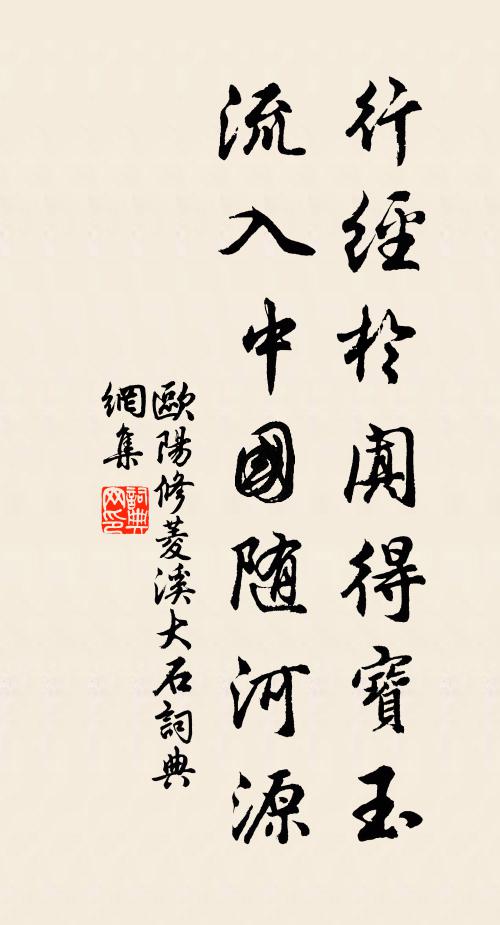 行經於闐得寶玉
流入中國隨河源
歐陽修菱溪大石詞典
網集
詞典
网印